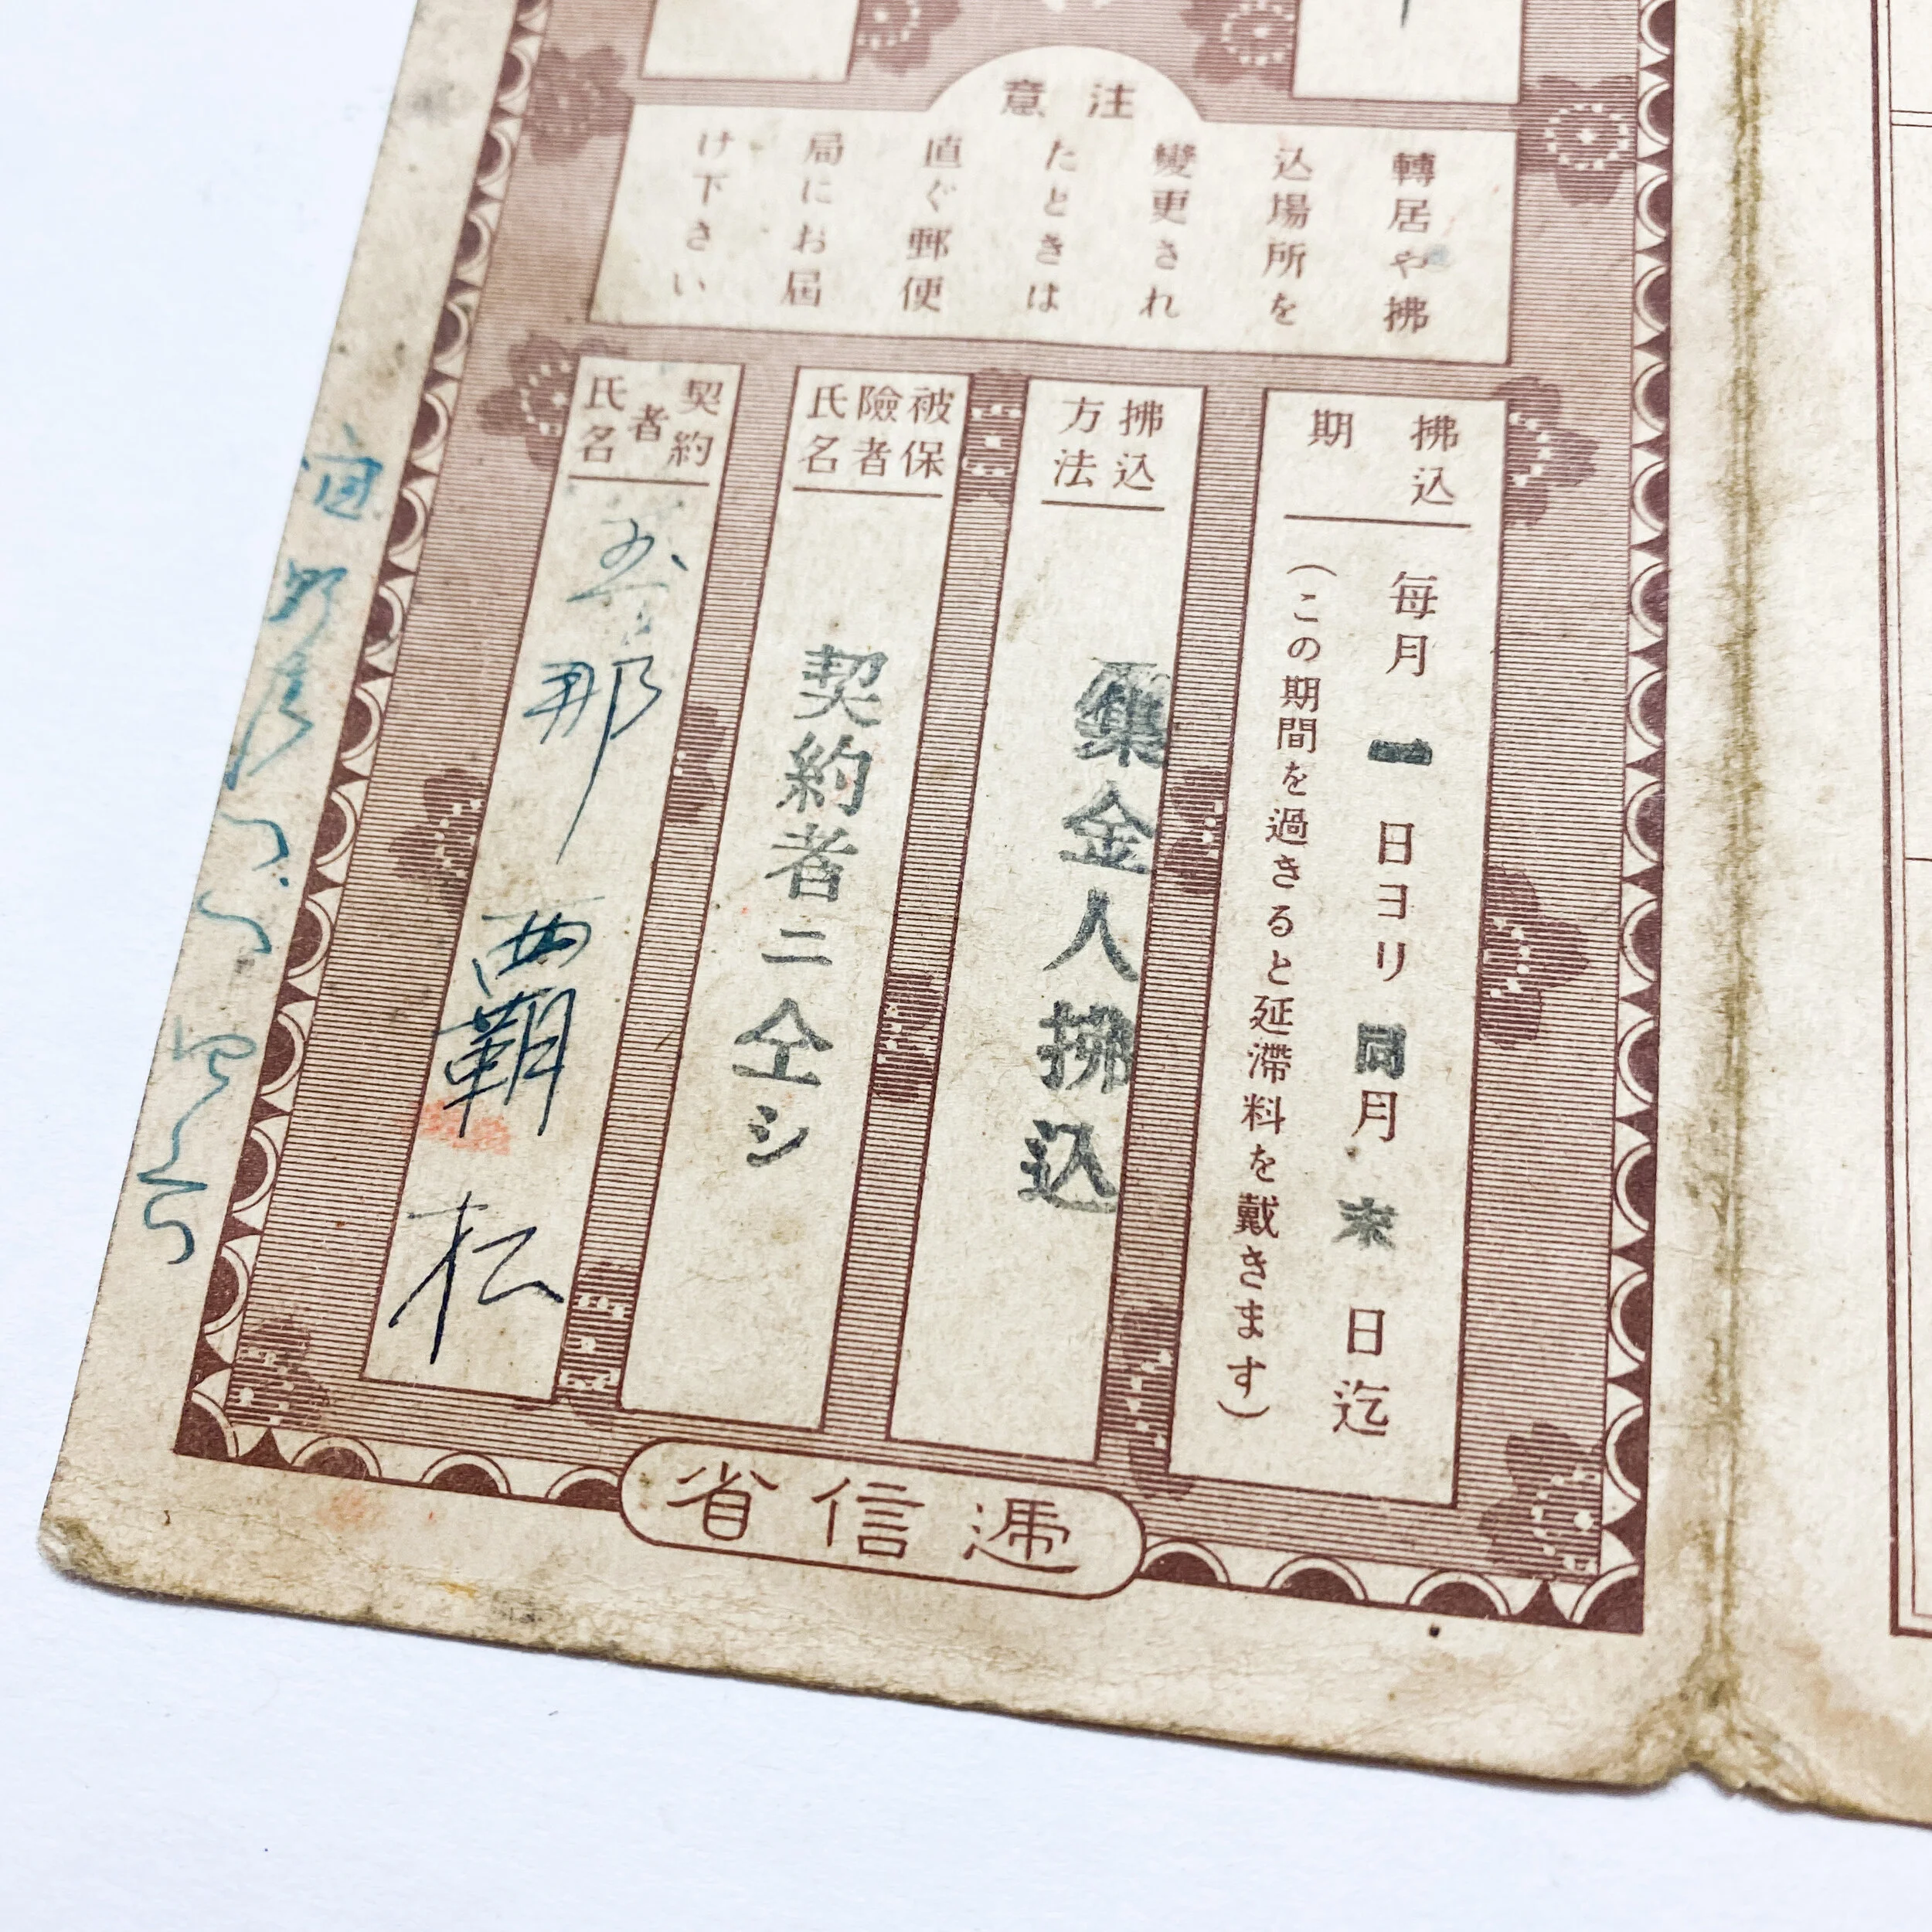 注意
轉居や拂
込場所を
變更され
たときは
直ぐ郵便
局にお屆
け下さい
拂込期
毎月一日ヨリ同月末日迄
（この期間を過きると延滯料を戴きます）
拂込方法
集金人拂込
被保險者氏名
契約者ニ仝シ
契約者氏名
那覇松
遞信省